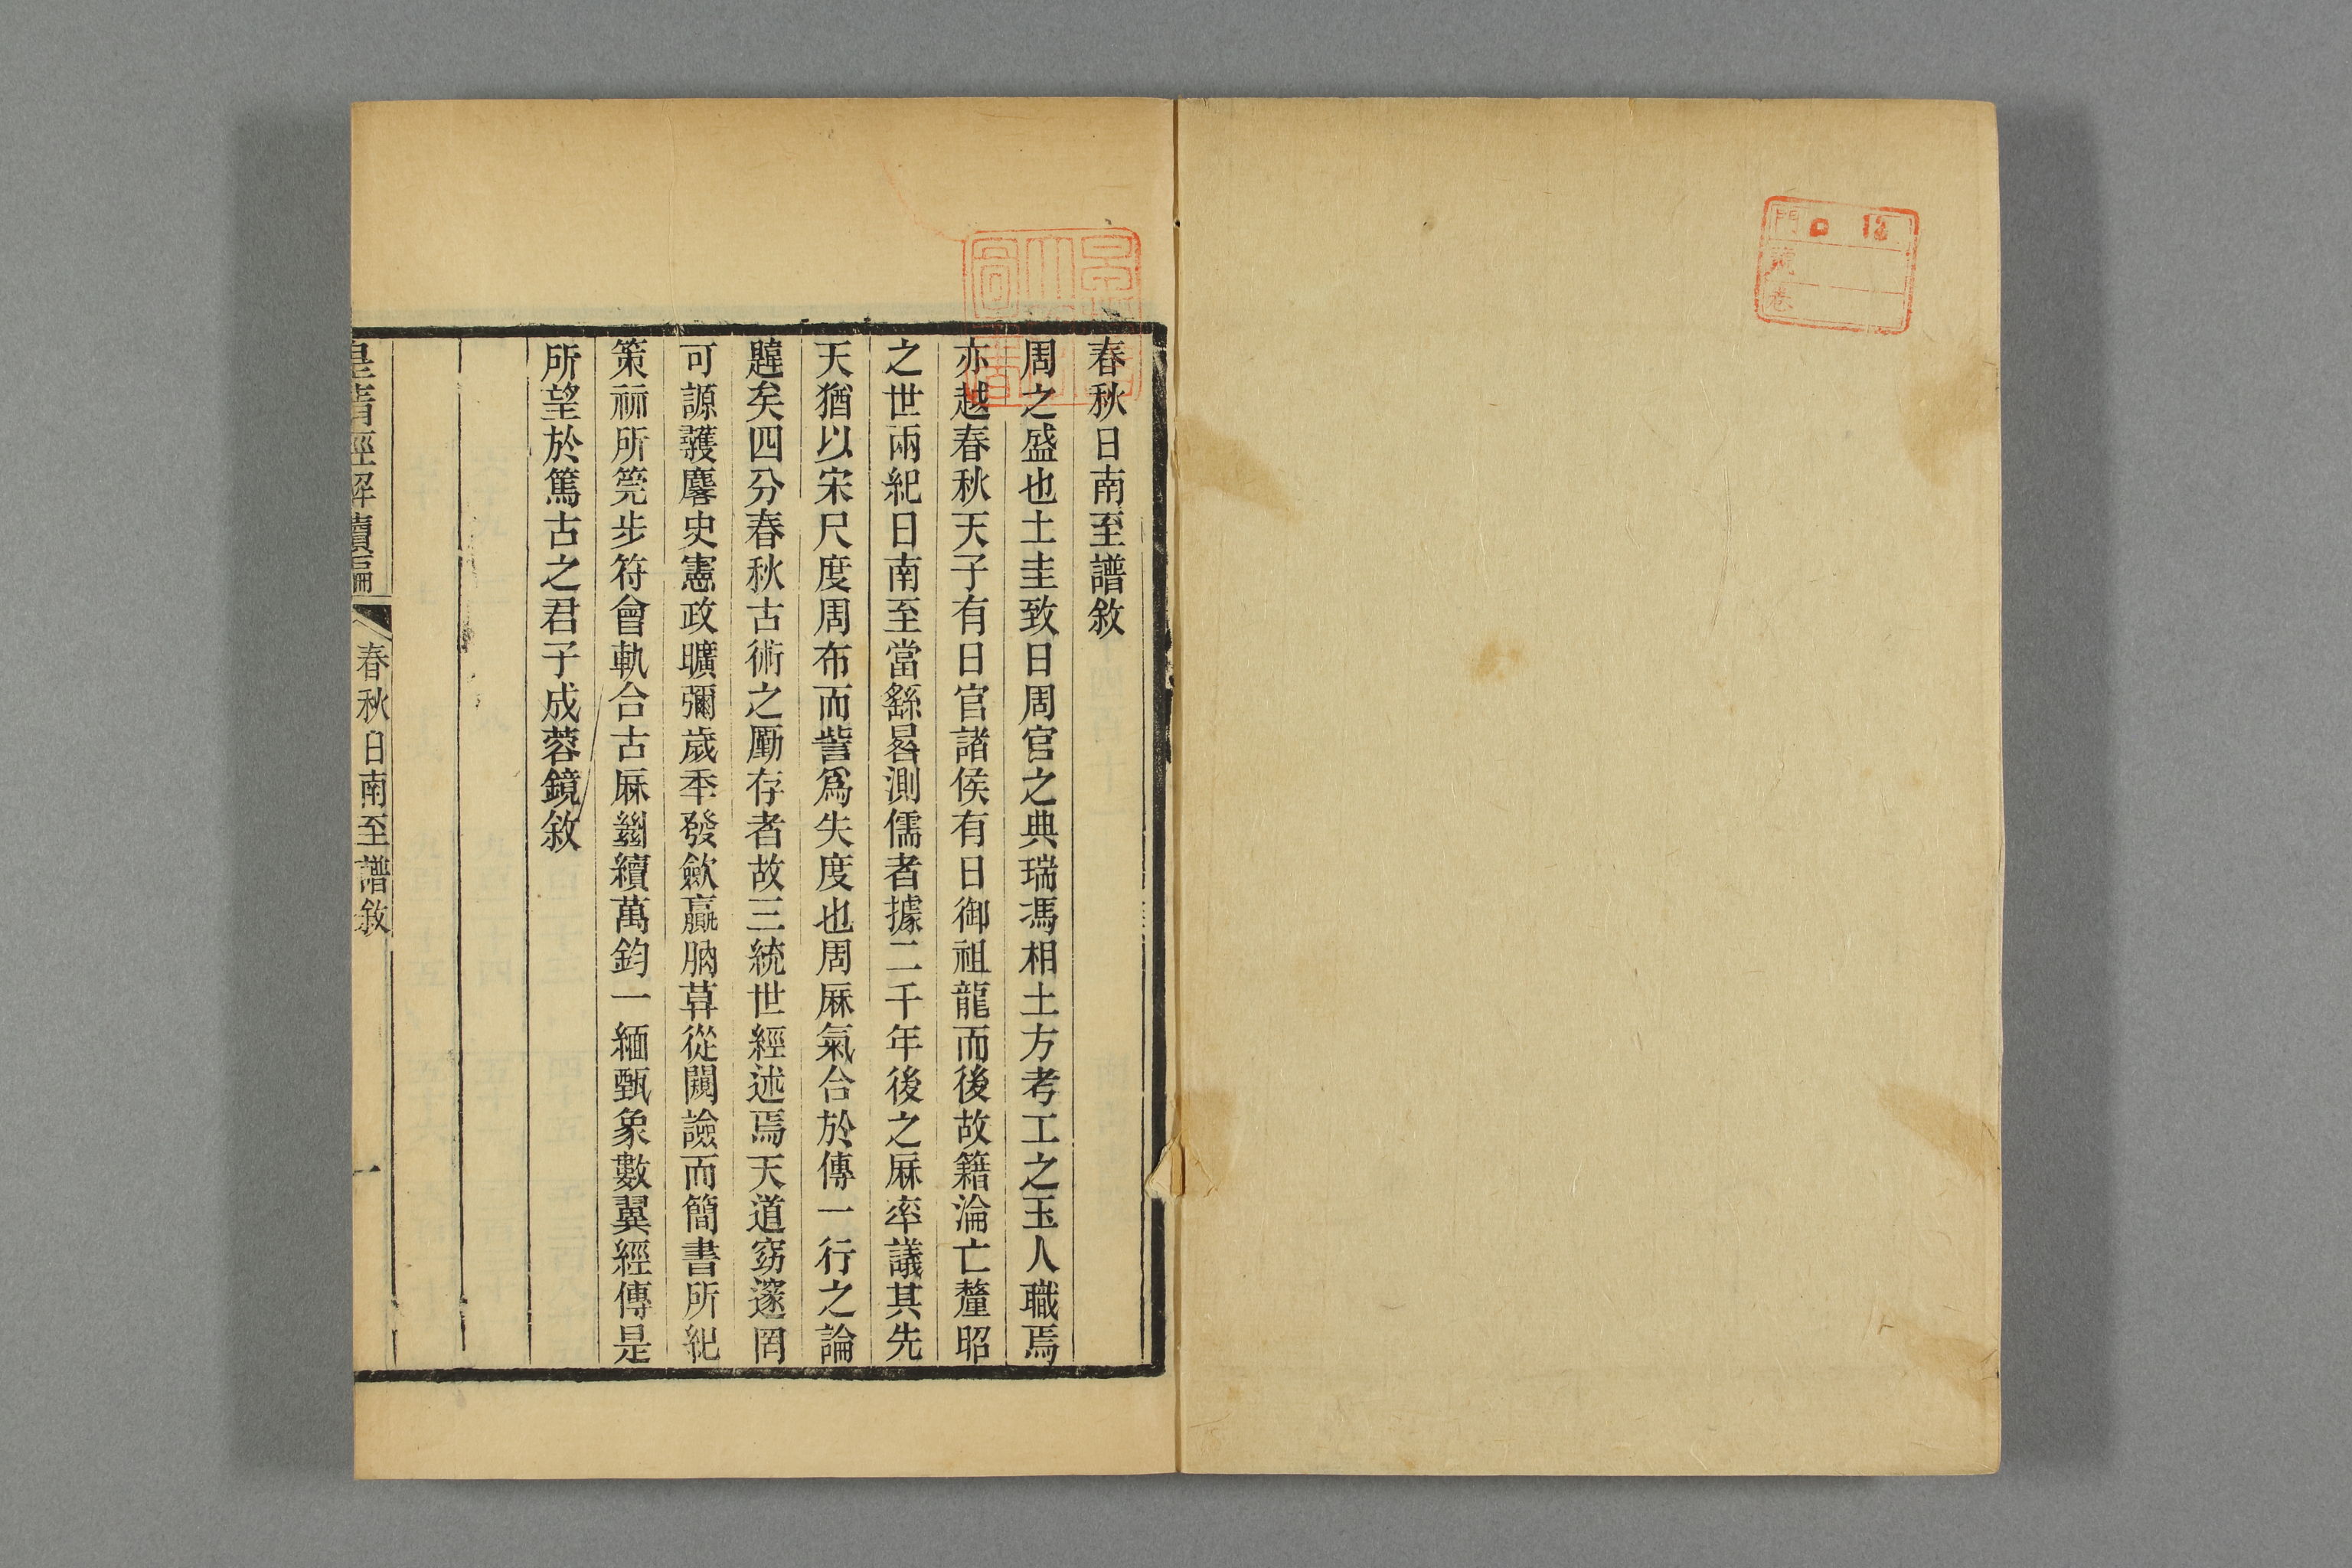 門 0 12
號
卷
春秋日南至譜敘
周之盛也土圭致日周官之典瑞馮相土方考工之玉人職焉
亦越春秋天子有日官諸侯有日御祖龍而後故籍淪亡釐昭
之世兩紀日南至當繇晷測儒者據二千年後之厤率議其先
天猶以宋尺度周布而訾爲失度也周厤氣合於傳一行之論
韙矣四分春秋古術之厪存者故三統世經述焉天道窈邃罔
可謜頀麐史憲政曠彌歲秊發歛贏朒葬從闕譣而簡書所紀
策祘所筦步符會軌合古厤繼續萬鈞一緬甄象數翼經傳是
所望於篤古之君子成蓉鏡敘
皇清經解續編
春秋日南至譜敘
一